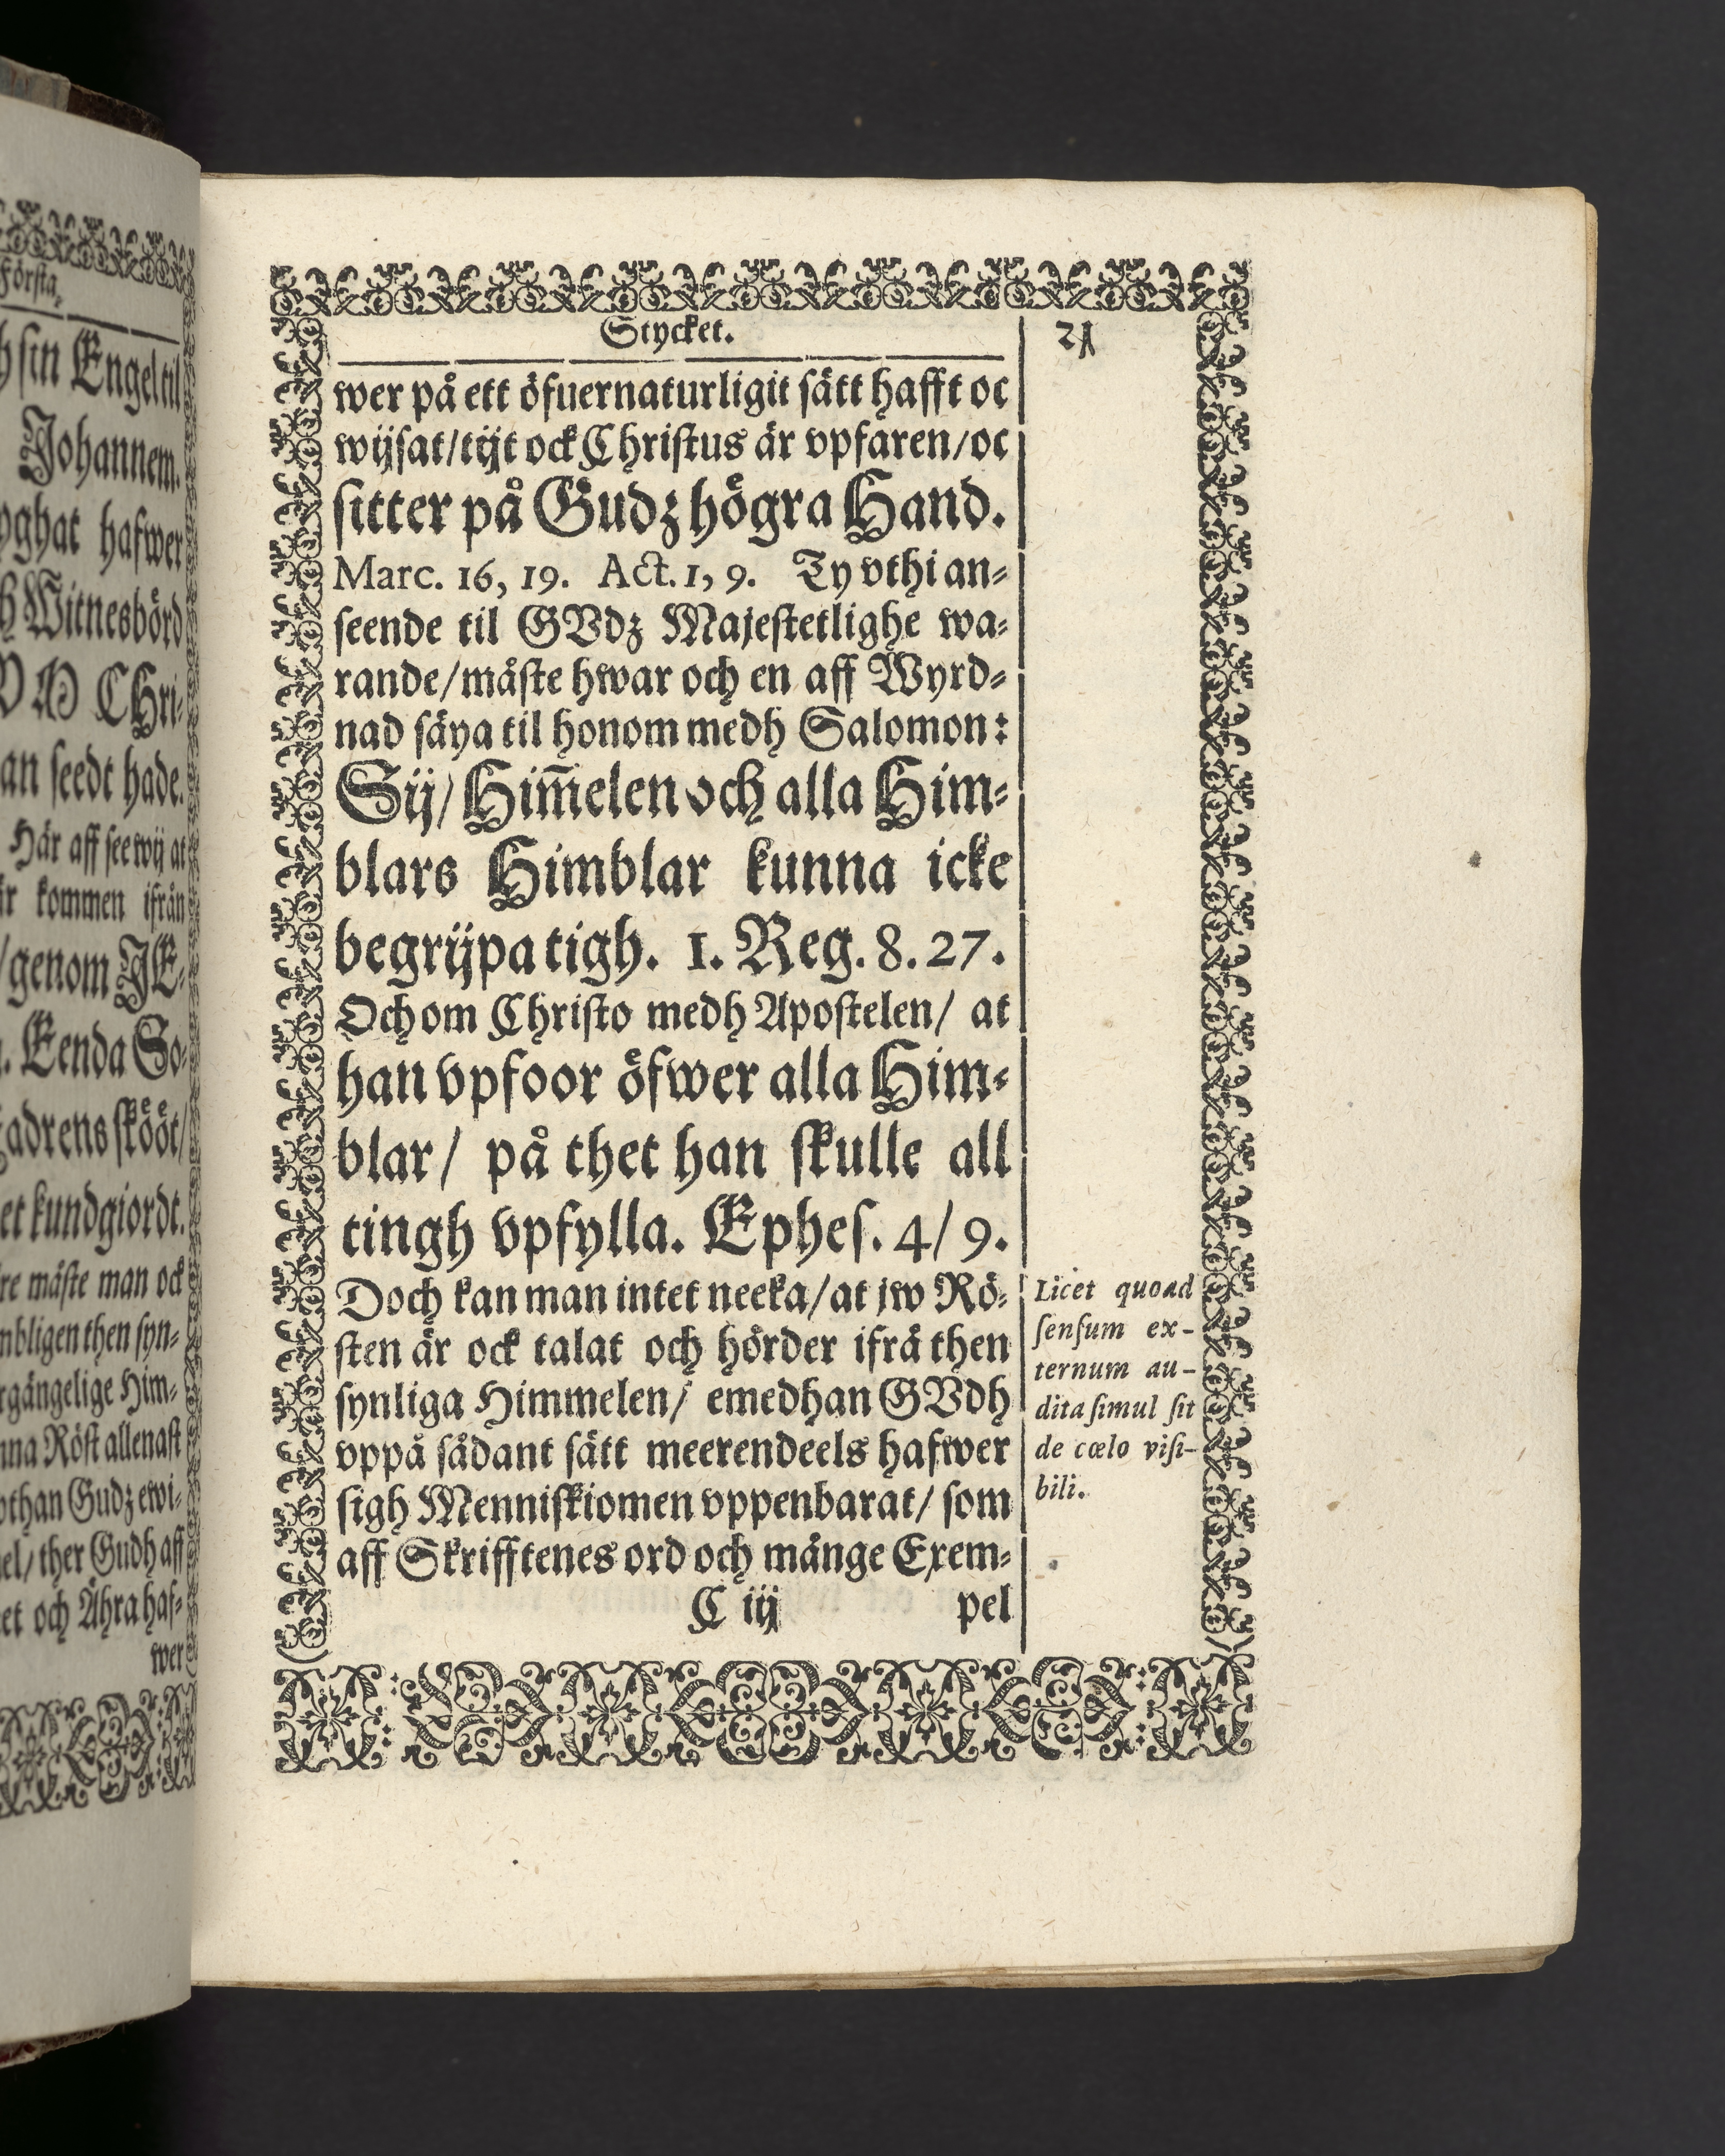 Första
sin Engel til
Johannem.
hafwer
Witnesbörd
CHri-
an seedt hade.
Här aff see wij at
kommen ifrån
/genom JE-
Eenda So-
skööt/
kundgiordt.
måste man ock
then syn-
Him-
Röst allenast
Gudz ewi-
ther Gudh aff
och Ähra haf-
wer
Stycket.
21
wer på ett öfuernaturligit sätt hafft oc
wijsat/tijt ock Christus är vpfaren/oc
sitter på Gudz högra Hand.
Marc. 16, 19. Act. 1, 9. Ty vthi an-
seende til GVdz Majestetlighe wa-
rande/måste hwar och en aff Wyrd-
nad säya til honom medh Salomon:
Sij/Him̃elen och alla Him-
blars Himblar kunna icke
begrijpa tigh. 1. Reg. 8. 27.
Och om Christo medh Apostelen/ at
han vpfoor öfwer alla Him-
blar/ på thet han skulle all
tingh vpfylla. Ephes. 4/ 9.
Doch kan man intet neeka/at jw Rö-
sten är ock talat och hörder ifrå then
synliga Himmelen/ emedhan GVdh
vppå sådant sätt meerendeels hafwer
sigh Menniskiomen vppenbarat/ som
aff Skrifftenes ord och månge Exem-
C iij pel
Licet quoad
sensum ex-
ternum au-
dita simul sit
de cœlo visi-
bili.